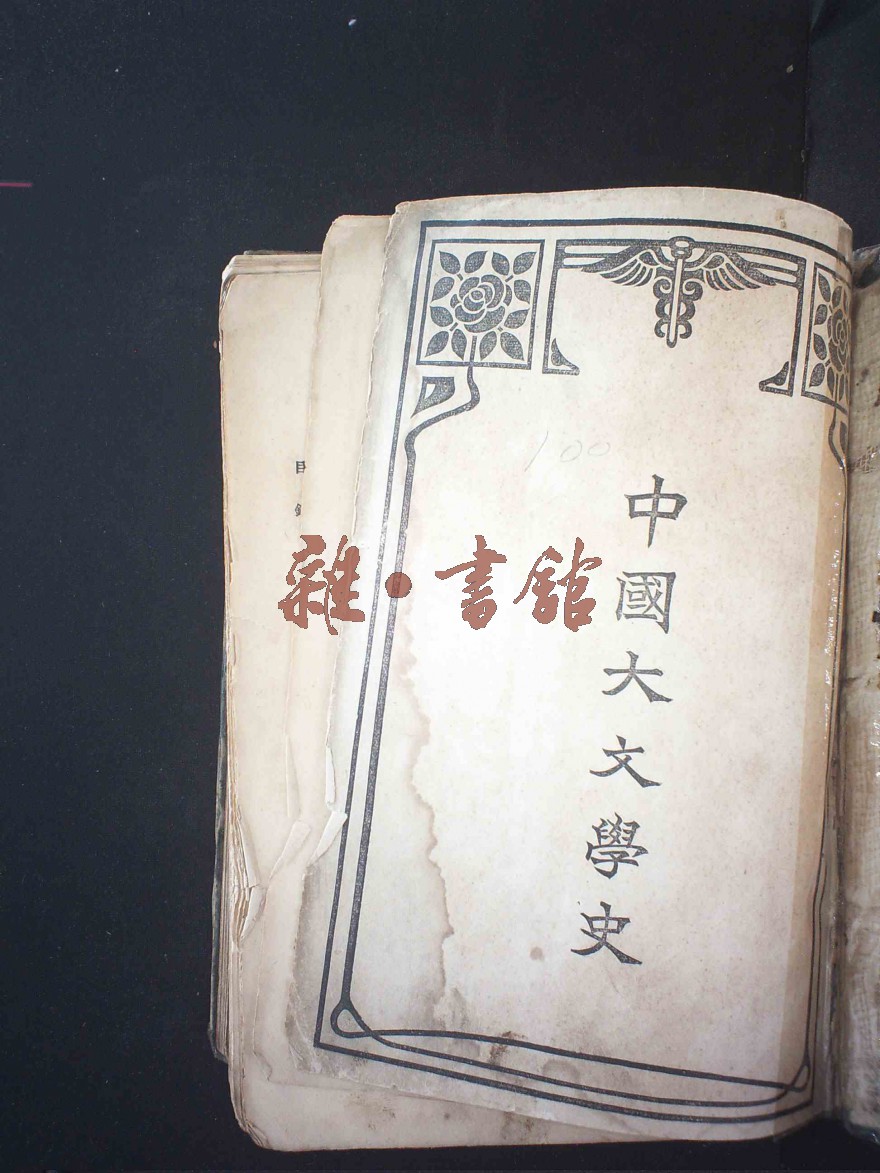 中國大文學史
100
雜·書館
目